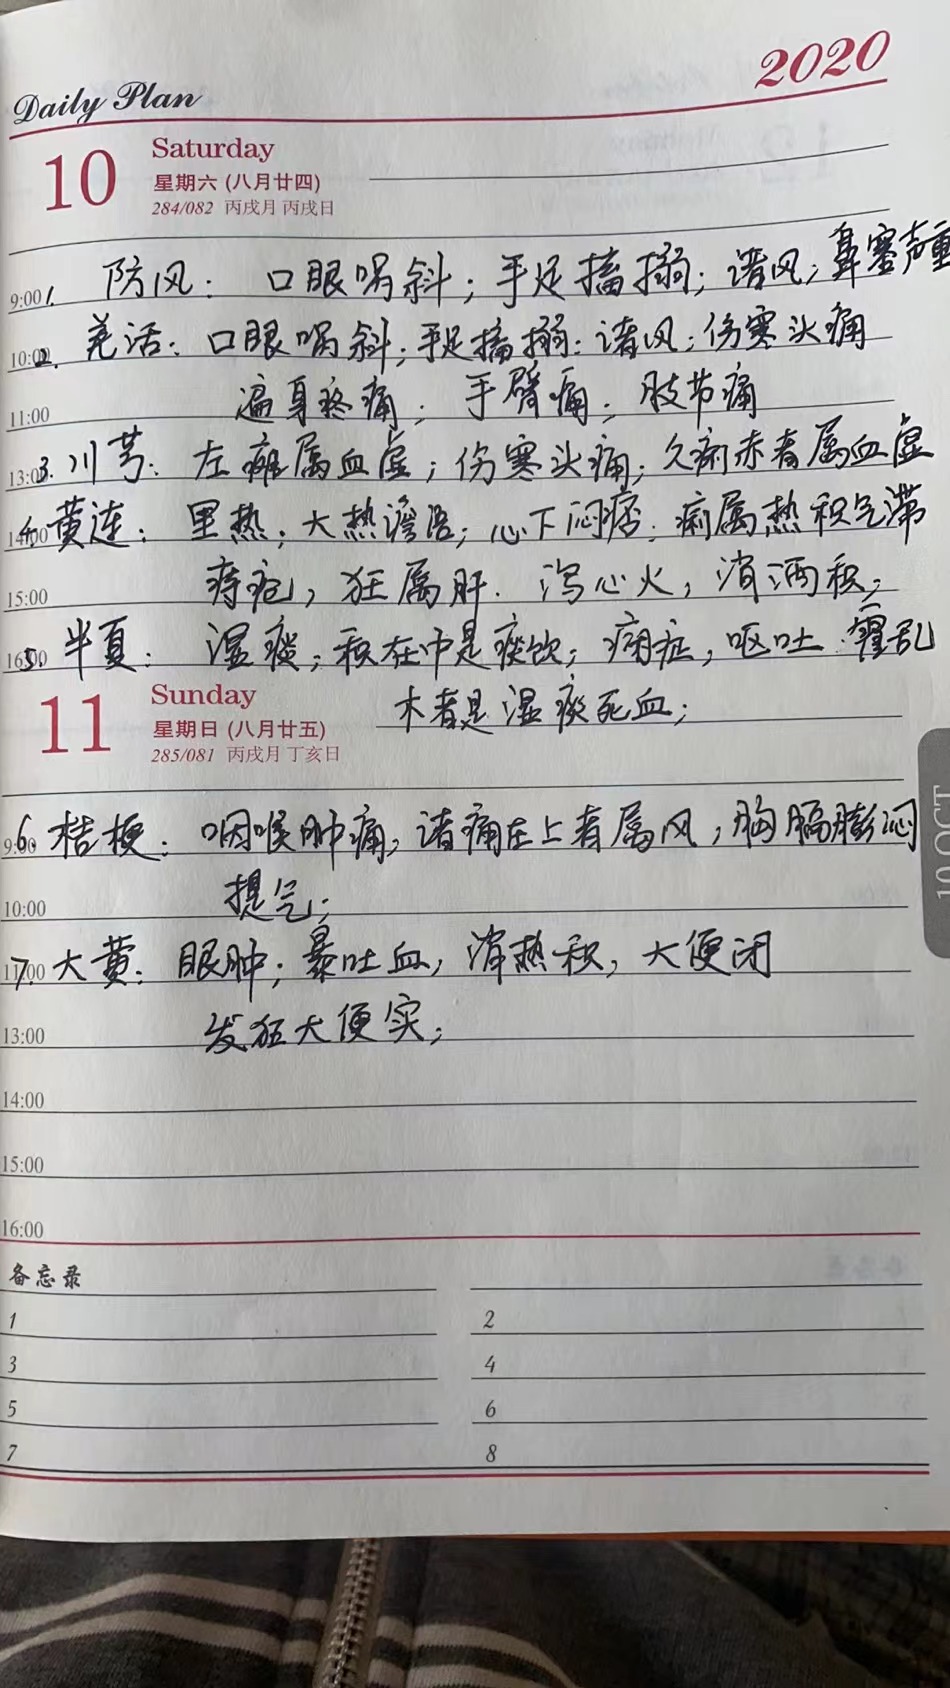 Daily Plan
2020
10 Saturday
星期六 (八月廿四)
284/082 丙戌月 丙戌日
9:00 1. 防风： 口眼喎斜；手足搐搦；诸风；鼻塞声重
10:00 2. 羌活：口眼喎斜；手足搐搦；诸风；伤寒头痛
11:00 遍身疼痛；手臂痛；肢节痛
13:00 3. 川芎：左瘫属血虚；伤寒头痛；久痢赤者属血虚
14:00 4. 黄连：里热；大热谵语；心下闷痞．痢属热积气滞
15:00 痔疮，狂属肝．泻心火，消酒积；
16:00 5. 半夏：湿痰；积在中是痰饮；痫症，呕吐．霍乱
11 Sunday
木者是湿痰死血；
星期日 (八月廿五)
285/081 丙戌月 丁亥日
9:00 6. 桔梗：咽喉肿痛，诸痛在上者属风，胸膈膨闷
10:00 提气；
11:00 7. 大黄：眼肿；暴吐血，消热积，大便闭
13:00 发狂大便实；
14:00
15:00
16:00
备忘录
1
2
3
4
5
6
7
8
10 OCT